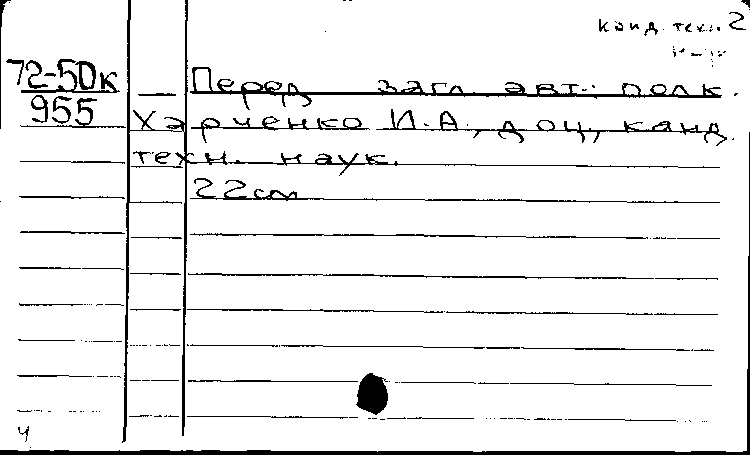 канд. техн. 2
72-50к
955
Перед загл. авт.: полк.
Харченко И.А., доц., канд.
техн. наук.
22 см
ч